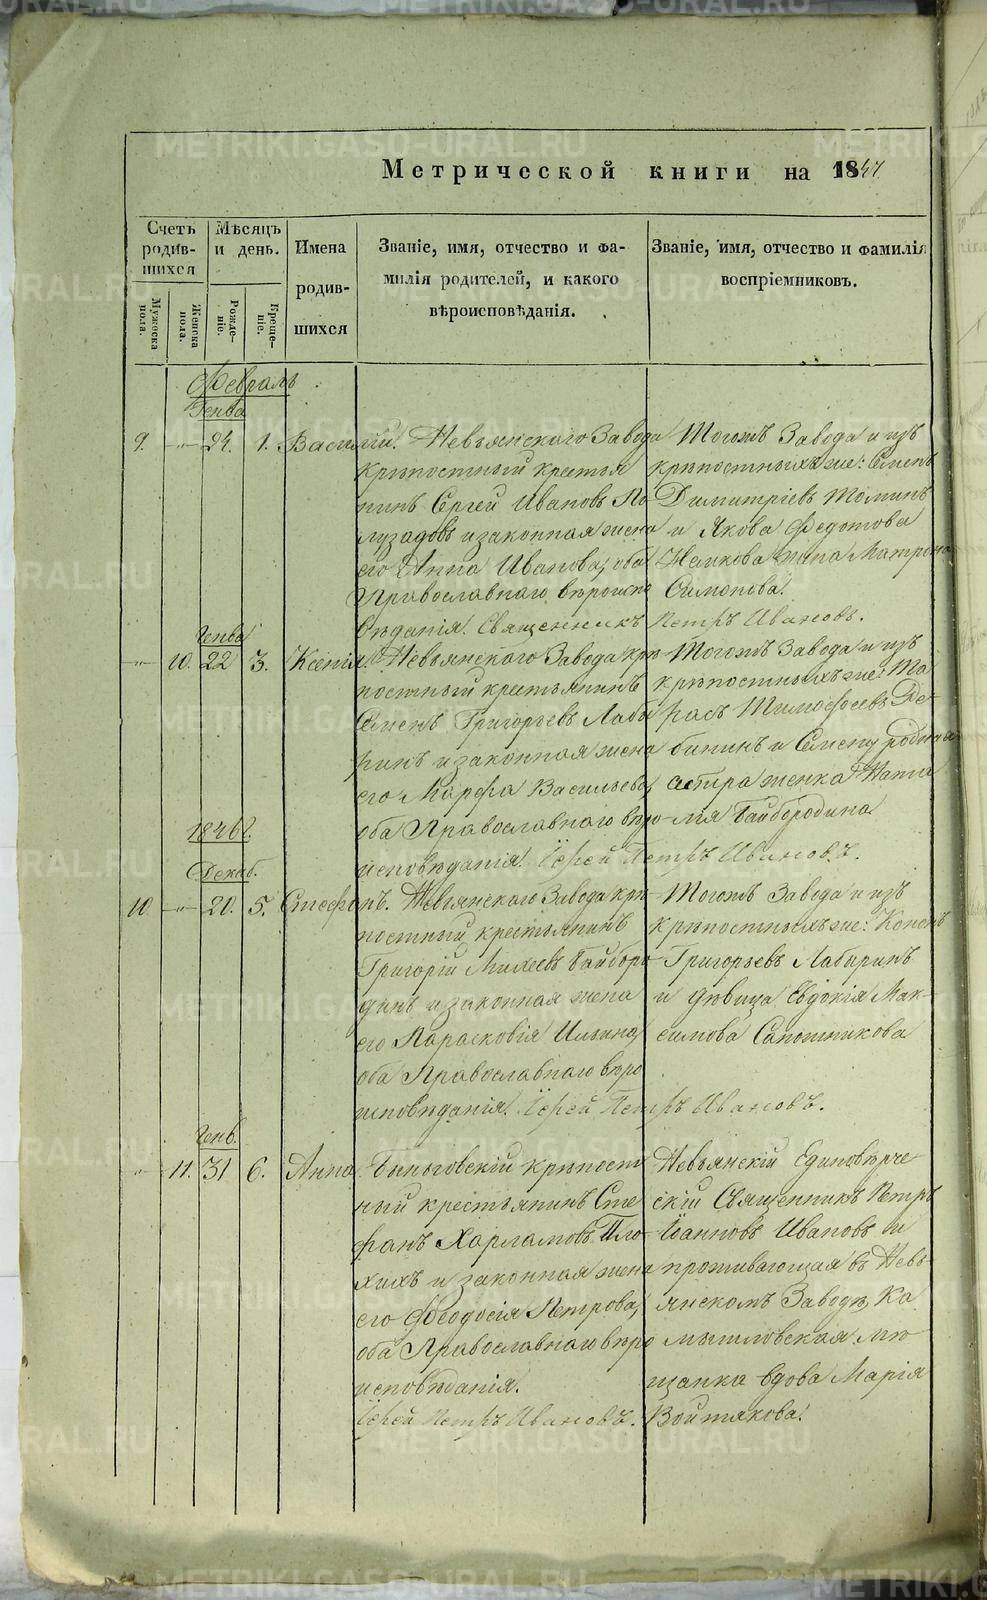 Метрической книги на 1847
Счетъ родив-шихся
Мужеска пола.
Женска пола.
Мѣсяцъ и день.
Рожде-ніе.
Креще-ніе.
Имена родив-шихся
Званіе, имя, отчество и фа-
милія родителей, и какого
вѣроисповѣданія.
Званіе, имя, отчество и фамилія
воспріемниковъ.
Февраль
Генва
9. -"- 24. 1. Василій.
Невьянскаго Завода
крѣпостный крестья
нинъ Сергей Ивановъ По
лузадовъ и законная жена
его Анна Иванова, оба
Православнаго вѣроиспо
вѣданія. Священникъ Петръ Ивановъ.
Тогожъ Завода и изъ
крѣпостныхъ же: Семенъ
Димитріевъ Томинъ
и Якова Федотова
Жемкова жена Матрона
Симонова.
Генва
-"- 10. 22 3. Ксенія.
Невьянскаго Завода крѣ-
постный крестьянинъ
Семенъ Григорьевъ Лабы
ринъ и законная жена
его Марфа Васильева,
оба Православнаго вѣро-
исповѣданія. Іерей Петръ Ивановъ.
Тогожъ Завода и изъ
крѣпостныхъ же: Та
расъ Тимофеевъ Де-
бининъ и Семену родная
сестра женка Ната
лія Байбородина
1846 г.
Декаб.
10 -"- 20. 5. Стефанъ.
Невьянскаго Завода крѣ-
постный крестьянинъ
Григорій Михеевъ Байборо
динъ и законная жена
его Парасковія Ильина,
оба Православнаго вѣро
исповѣданія. Іерей Петръ Ивановъ.
Тогожъ Завода и изъ
крѣпостныхъ же: Кононъ
Григорьевъ Лабыринъ
и дѣвица Евдокія Мак-
симова Сапожникова
Генв.
-"- 11. 31 6. Анна.
Быньговскій крѣпост
ный крестьянинъ Сте
фанъ Харламовъ Пло-
хихъ и законная жена
его Феодосія Петрова,
оба Православнаго вѣро
исповѣданія.
Іерей Петръ Ивановъ.
Невьянскій Единовѣрче
скій Священникъ Петръ
Іоанновъ Ивановъ и
проживающая въ Невь-
янскомъ Заводѣ, Ка
мышловская мѣ
щанка вдова Марія
Войтякова.
METRIKI.GASO-URAL.RU